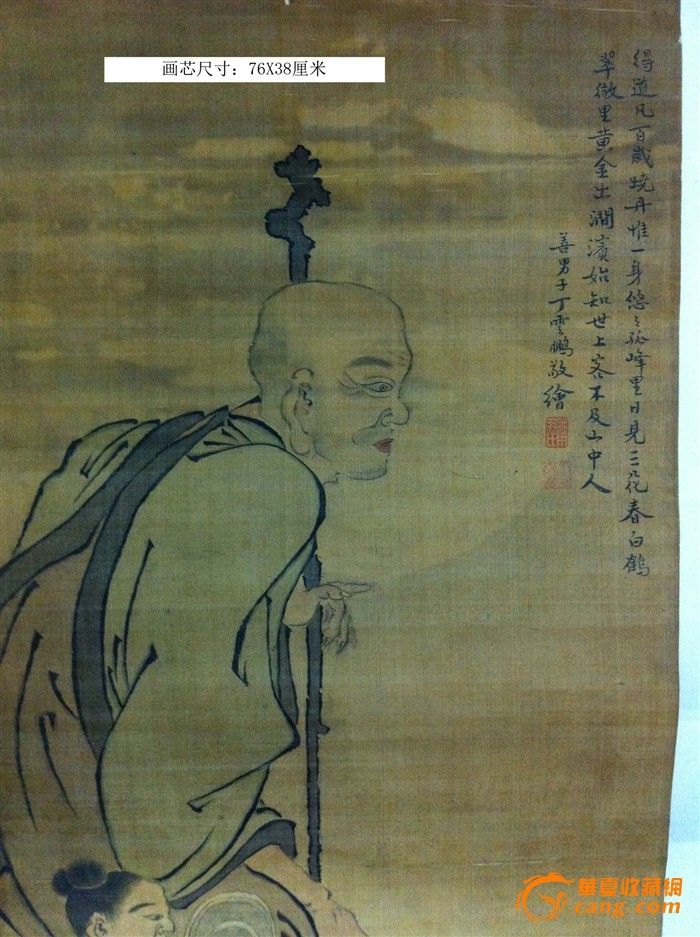 画芯尺寸：76X38厘米
得道凡百歲燒丹惟一身悠〻孤峰里日見三花春白鶴
翠微里黃金出澗濱始知世上客不及山中人
善男子丁雲鵬敬繪
華夏收藏網
cang.com